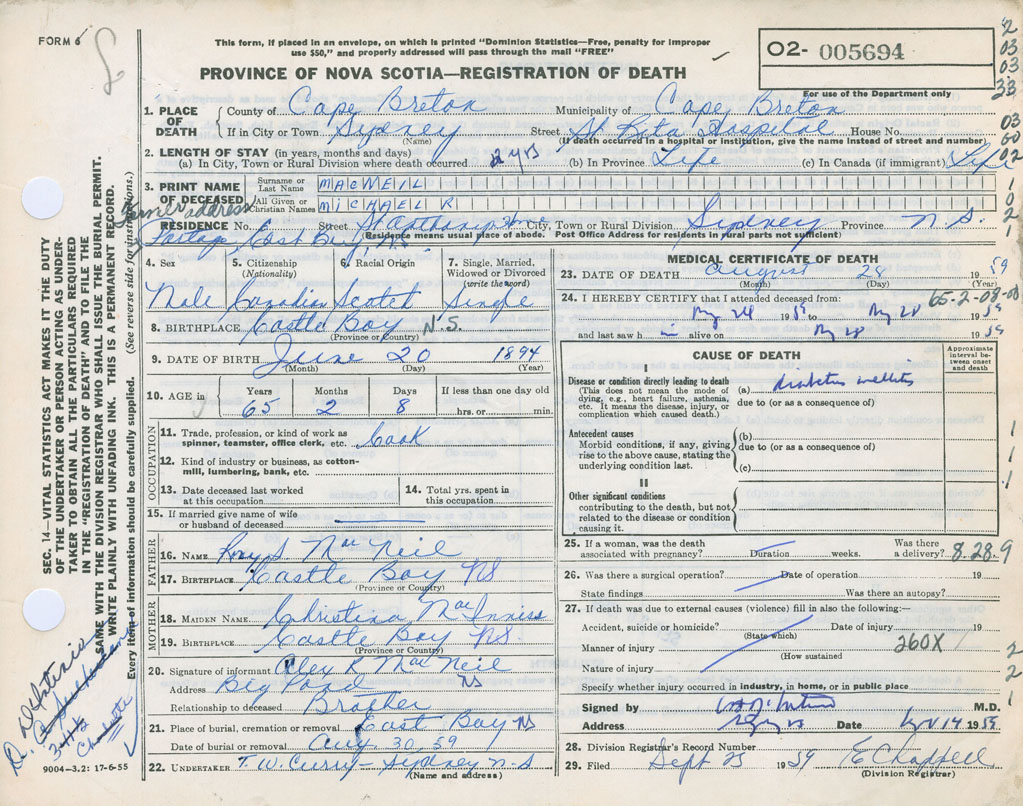 FORM 6
This form, if placed in an envelope, on which is printed "Dominion Statistics—Free, penalty for improper
use $50," and properly addressed will pass through the mail "FREE"
PROVINCE OF NOVA SCOTIA—REGISTRATION OF DEATH
02- 005694
For use of the Department only
2
03
03
33
03
60
02
1. PLACE OF DEATH
County of Cape Breton Municipality of Cape Breton
If in City or Town Sydney Street St Rita Hospital House No.
(Name) (If death occurred in a hospital or institution, give the name instead of street and number)
2. LENGTH OF STAY (in years, months and days)
(a) In City, Town or Rural Division where death occurred 2 yrs (b) In Province Life (c) In Canada (if immigrant) Life
3. PRINT NAME OF DECEASED
Surname or Last Name MACNEIL
All Given or Christian Names MICHAEL R
Former address
RESIDENCE No. Street St Anthony Home City, Town or Rural Division Sydney Province N S.
East Bay NS
Residence means usual place of abode. Post Office Address for residents in rural parts not sufficient)
4. Sex 5. Citizenship (Nationality) 6. Racial Origin 7. Single, Married, Widowed or Divorced (write the word)
Male Canadian Scotch Single
8. BIRTHPLACE Castle Bay N.S.
(Province or Country)
9. DATE OF BIRTH June 20 1894
(Month) (Day) (Year)
10. AGE in Years Months Days If less than one day old
65 2 8 hrs. or min.
OCCUPATION
11. Trade, profession, or kind of work as spinner, teamster, office clerk, etc. Cook
12. Kind of industry or business, as cotton-mill, lumbering, bank, etc.
13. Date deceased last worked at this occupation
14. Total yrs. spent in this occupation
15. If married give name of wife or husband of deceased
FATHER
16. NAME Rory S MacNeil
17. BIRTHPLACE Castle Bay NS
(Province or Country)
MOTHER
18. MAIDEN NAME Christina MacInnis
19. BIRTHPLACE Castle Bay NS
(Province or Country)
20. Signature of informant Alex R MacNeil
Address Big Pond NS
Relationship to deceased Brother
21. Place of burial, cremation or removal East Bay NS
Date of burial or removal Aug 30, 59
22. UNDERTAKER T. W. Curry - Sydney N-S
(Name and address)
MEDICAL CERTIFICATE OF DEATH
23. DATE OF DEATH August 28 1959
(Month) (Day) (Year)
24. I HEREBY CERTIFY that I attended deceased from: 65-2-08-00
1959 to 1959
and last saw him alive on 1959
CAUSE OF DEATH
Approximate interval between onset and death
I
Disease or condition directly leading to death
(This does not mean the mode of dying, e.g., heart failure, asthenia, etc. It means the disease, injury, or complication which caused death.)
(a) diabetes mellitus
due to (or as a consequence of)
Antecedent causes
Morbid conditions, if any, giving rise to the above cause, stating the underlying condition last.
(b)
due to (or as a consequence of)
(c)
II
Other significant conditions
contributing to the death, but not related to the disease or condition causing it.
25. If a woman, was the death associated with pregnancy? Duration weeks. Was there a delivery? 8.28.9
26. Was there a surgical operation? Date of operation 19
State findings Was there an autopsy?
27. If death was due to external causes (violence) fill in also the following:—
Accident, suicide or homicide? Date of injury 19
(State which)
Manner of injury 260X
(How sustained
Nature of injury
Specify whether injury occurred in industry, in home, or in public place
Signed by M.D.
Address Date 14 1959
28. Division Registrar's Record Number
29. Filed Sept 25 1959 E Chappell
(Division Registrar)
SEC. 14—VITAL STATISTICS ACT MAKES IT THE DUTY
OF THE UNDERTAKER OR PERSON ACTING AS UNDER-
TAKER TO OBTAIN ALL THE PARTICULARS REQUIRED
IN THE "REGISTRATION OF DEATH" AND TO FILE THE
SAME WITH THE DIVISION REGISTRAR WHO SHALL ISSUE THE BURIAL PERMIT.
WRITE PLAINLY WITH UNFADING INK. THIS IS A PERMANENT RECORD.
Every item of information should be carefully supplied. (See reverse side for instructions.)
Charlotte
9004—3.2: 17-6-55